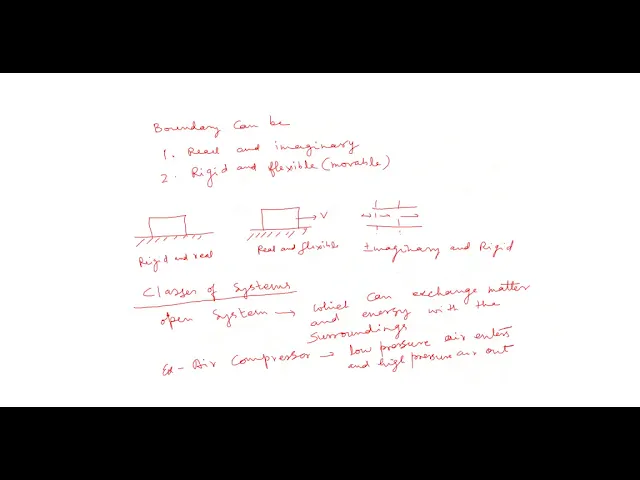 Boundary can be
1. Real and imaginary
2. Rigid and flexible (movable)
V
Rigid and real
Real and flixible
Imaginary and Rigid
Classes of Systems
open System → which can exchange matter
and energy with the
Surroundings
Ex - Air Compressor → low pressure air enters
and high pressure air out